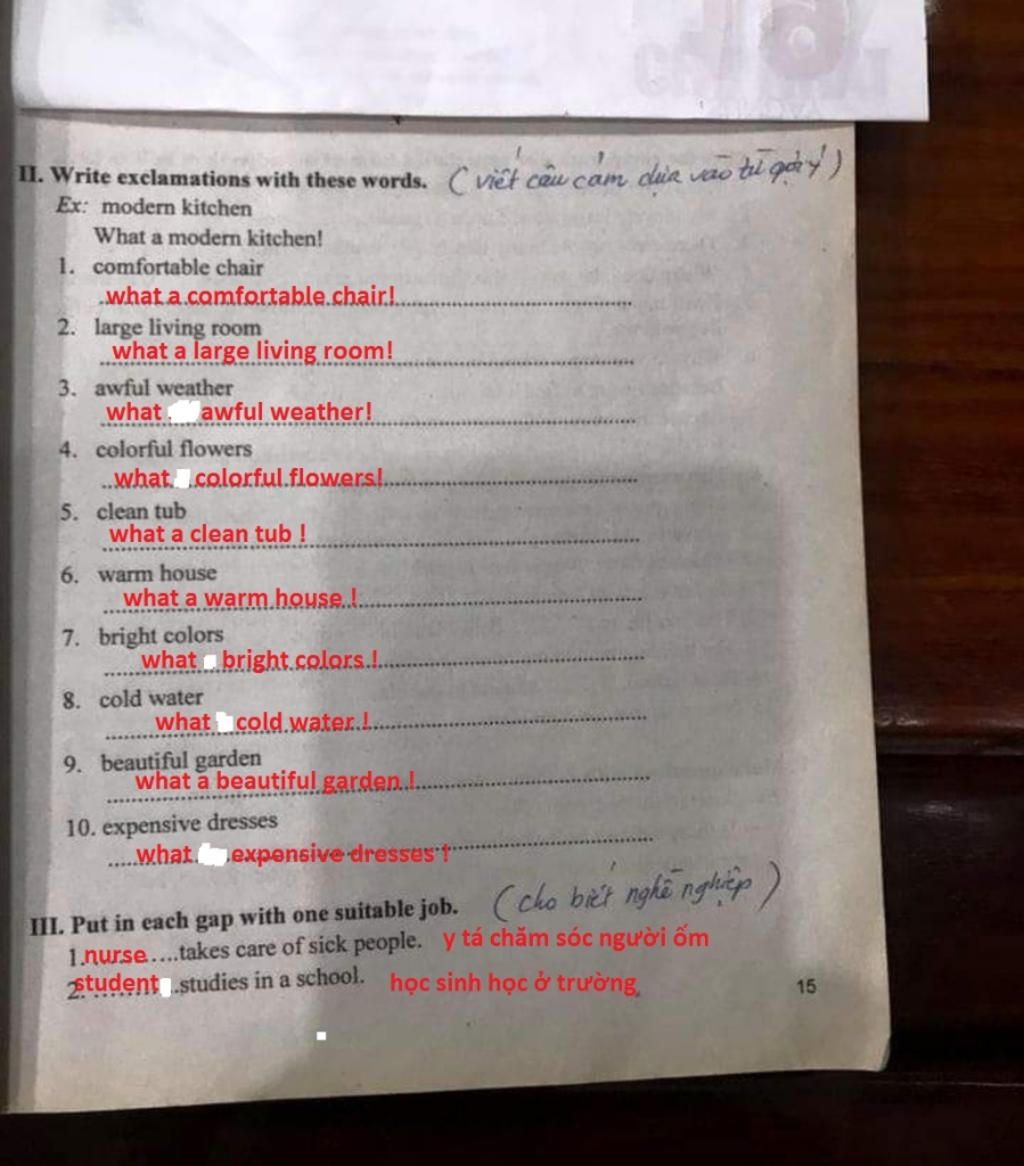 II. Write exclamations with these words. (viết câu cảm dựa vào từ gợi ý)
Ex: modern kitchen
What a modern kitchen!
1. comfortable chair
what a comfortable chair!
2. large living room
what a large living room!
3. awful weather
what awful weather!
4. colorful flowers
what colorful flowers!
5. clean tub
what a clean tub !
6. warm house
what a warm house !
7. bright colors
what bright colors !
8. cold water
what cold water !
9. beautiful garden
what a beautiful garden !
10. expensive dresses
what expensive dresses !
III. Put in each gap with one suitable job. (cho biết nghề nghiệp)
1.nurse....takes care of sick people. y tá chăm sóc người ốm
2. student..studies in a school. học sinh học ở trường
15